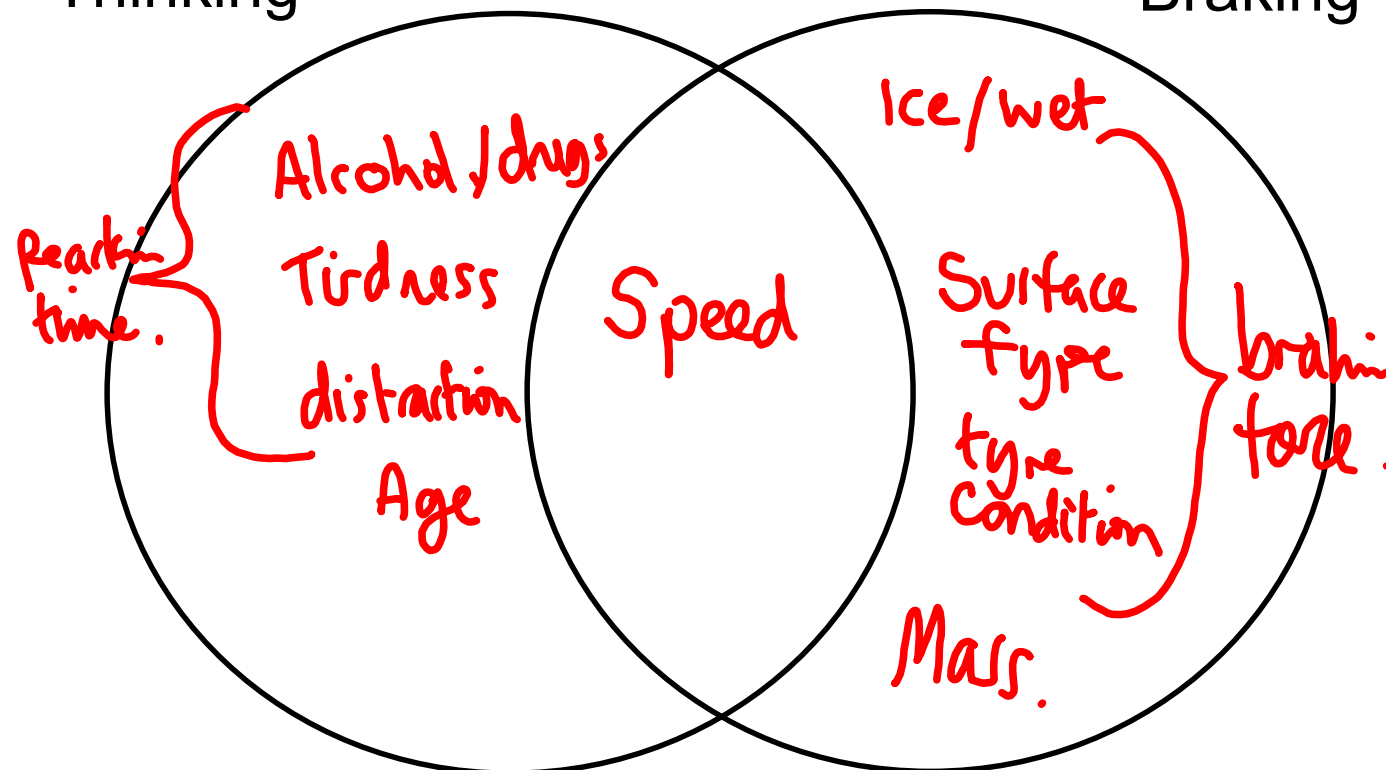 Thinking
Braking
Reaction
time.
Alcohol/drugs
Tirdness
distraction
Age
Speed
Ice/wet
Surface
type
tyre
condition
Mass.
braking
force.